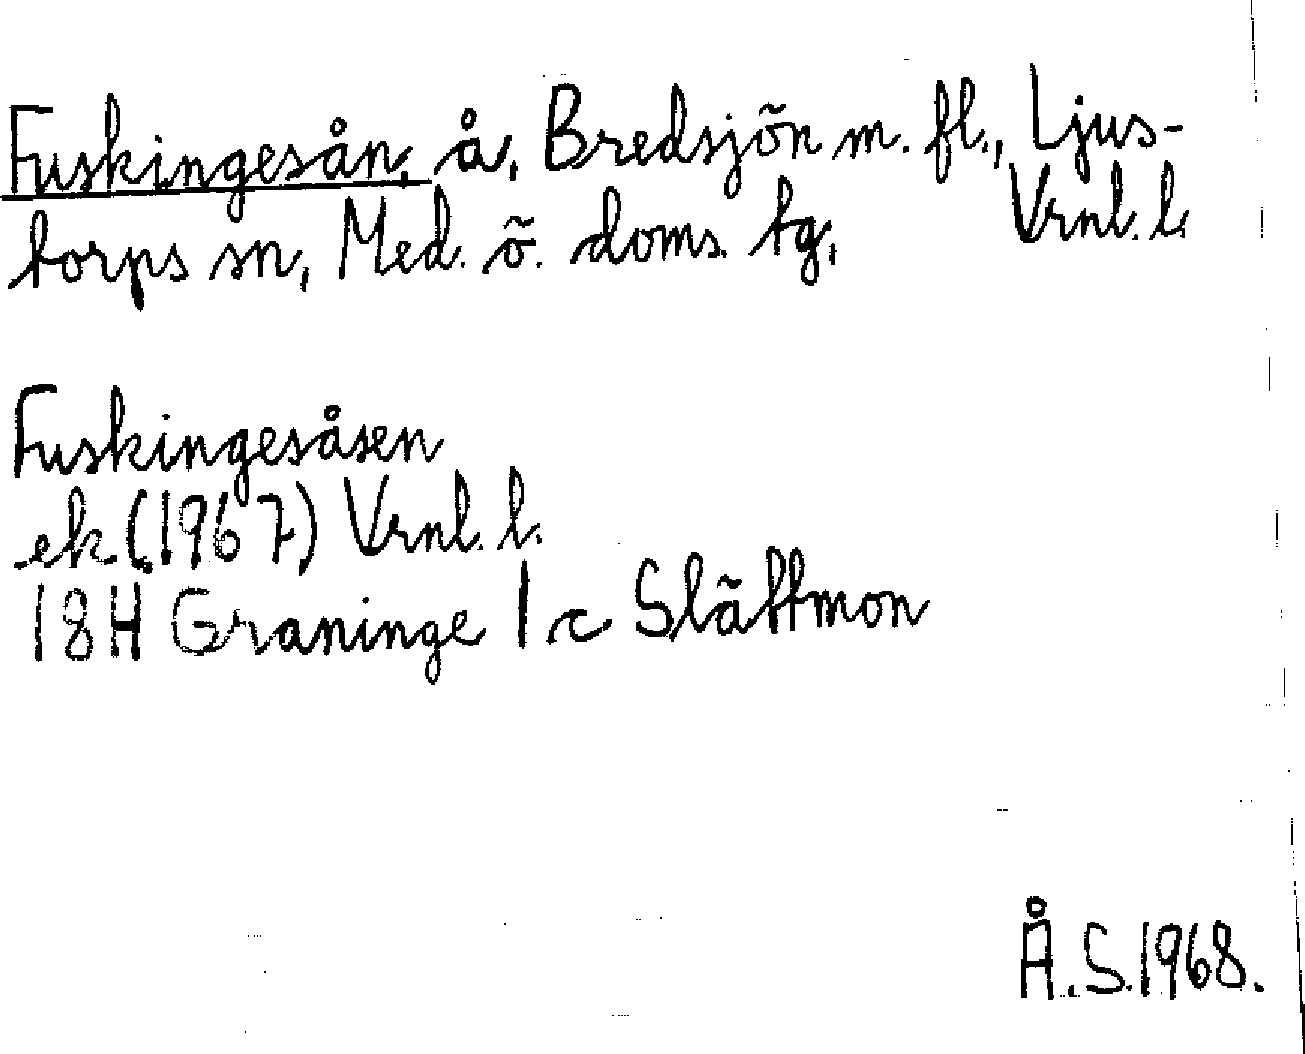 Fuskingesån, å, Bredsjön m. fl., Ljus-
torps sn, Med. ö. doms. tg, Vrnl. l.
Fuskingesåsen
ek (1967) Vrnl. l.
18H Graninge 1 c Slättmon
Å.S.1968.